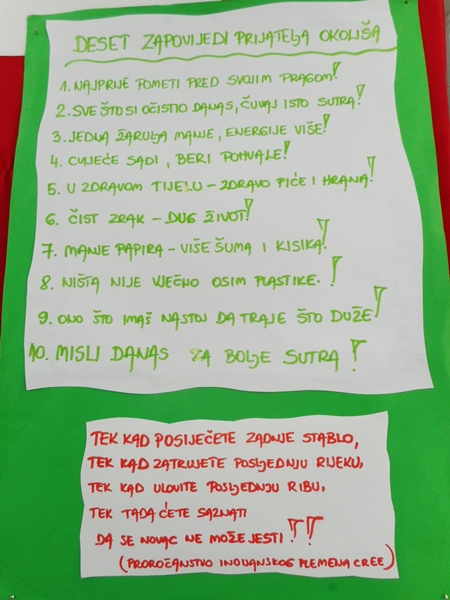 DESET ZAPOVIJEDI PRIJATELJA OKOLIŠA
1. NAJPRIJE POMETI PRED SVOJIM PRAGOM!
2. SVE ŠTO SI OČISTIO DANAS, ČUVAJ ISTO SUTRA!
3. JEDNA ŽARULJA MANJE, ENERGIJE VIŠE!
4. CVIJEĆE SADI, BERI POHVALE!
5. U ZDRAVOM TIJELU - ZDRAVO PIĆE I HRANA!
6. ČIST ZRAK - DUG ŽIVOT!
7. MANJE PAPIRA - VIŠE ŠUMA I KISIKA!
8. NIŠTA NIJE VJEČNO OSIM PLASTIKE. !
9. ONO ŠTO IMAŠ NASTOJ DA TRAJE ŠTO DUŽE!
10. MISLI DANAS ZA BOLJE SUTRA!
TEK KAD POSIJEČETE ZADNJE STABLO,
TEK KAD ZATRUJETE POSLJEDNJU RIJEKU,
TEK KAD ULOVITE POSLJEDNJU RIBU,
TEK TADA ĆETE SAZNATI
DA SE NOVAC NE MOŽE JESTI!!!
(PROROČANSTVO INDIJANSKOG PLEMENA CREE)